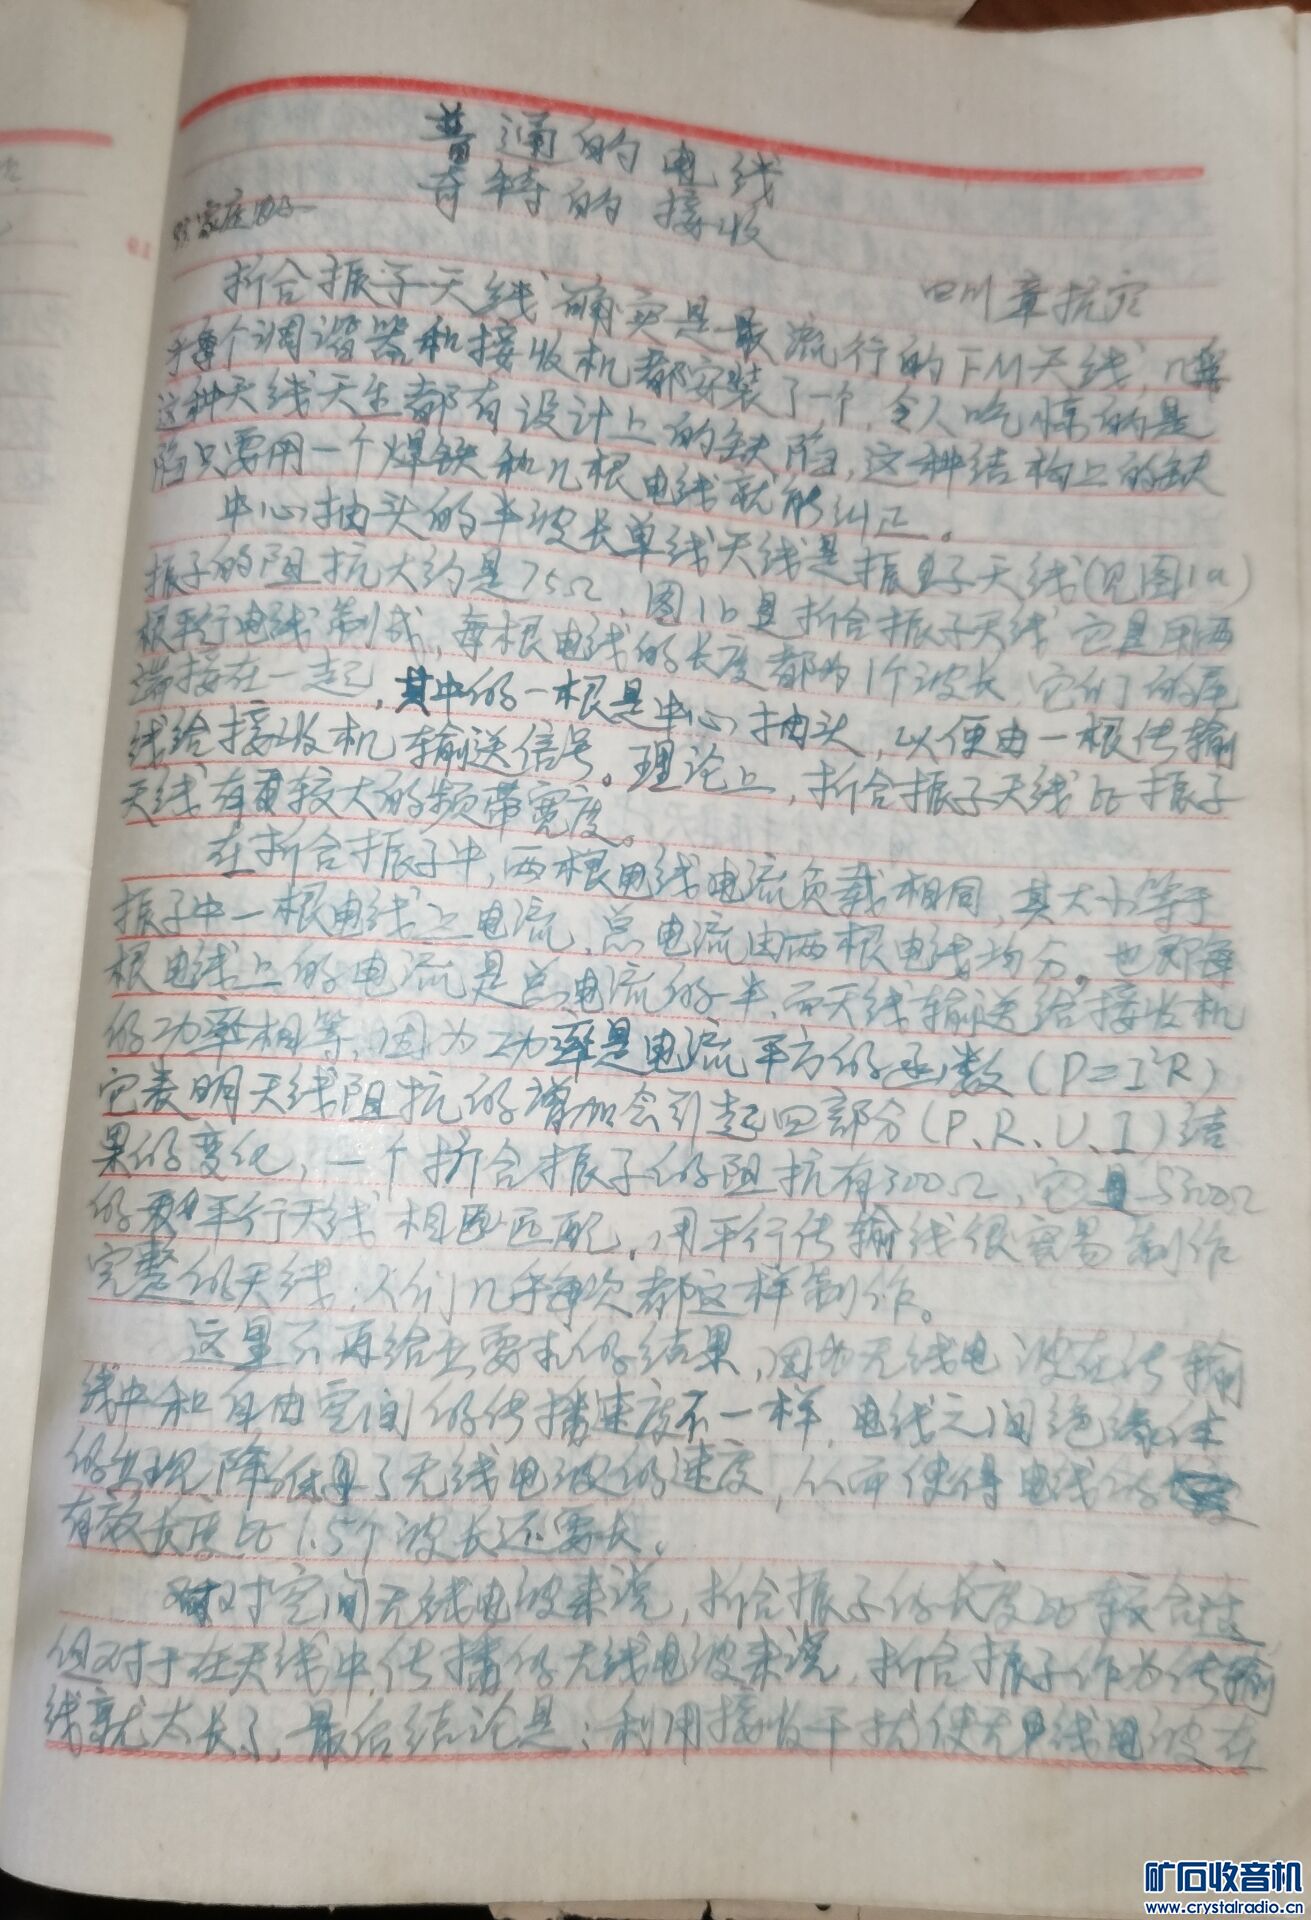 普通的电线
奇特的接收
四川章抗灾
折合振子天线确实是最流行的FM天线,几
乎每个调谐器和接收机都安装了一个,令人吃惊的是
这种天线天生都有设计上的缺陷,这种结构上的缺
陷只要用一个焊铁和几根电线就能纠正。
中心抽头的半波长单线天线是振子天线(见图1a)
振子的阻抗大约是75Ω,图1b是折合振子天线它是用两
根平行电线制成,每根电线的长度都为1个波长,它们的尾
端接在一起,其中的一根是中心抽头,以便由一根传输
线给接收机输送信号。理论上,折合振子天线比振子
天线有较大的频带宽度。
在折合振子中,两根电线电流负载相同,其大小等于
振子中一根电线上电流,总电流由两根电线均分。也即每
根电线上的电流是总电流的一半,而天线输送给接收机
的功率相等,因为功率是电流平方的函数(P=I²R)
它表明天线阻抗的增加会引起四部分(P、R、U、I)结
果的变化,一个折合振子的阻抗有300Ω,它与300Ω
的平行天线相匹配,用平行传输线很容易制作
完整的天线;人们几乎每次都这样制作。
这里不再给出要求的结果,因为无线电波在传输
线中和自由空间的传播速度不一样,电线之间绝缘体
的出现降低了无线电波的速度,从而使得电线的
有效长度比1.5个波长还要长。
对空间无线电波来说,折合振子的长度比较合适
但对于在天线中传播的无线电波来说,折合振子作为传输
线就太长了,最后结论是:利用接收干扰使无线电波在
矿石收音机
www.crystalradio.cn